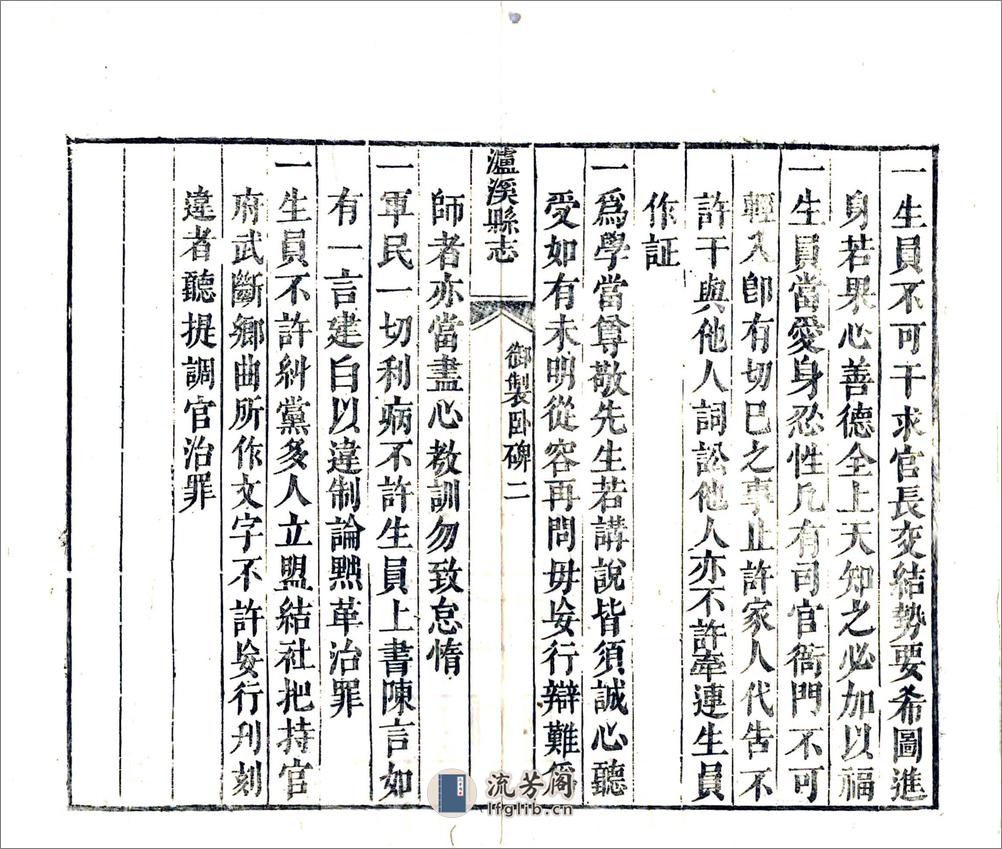 一生員不可干求官長交結勢要希圖進
身若果心善德全上天知之必加以福
一生員當愛身忍性凡有司官衙門不可
輕入卽有切己之事止許家人代告不
許干與他人詞訟他人亦不許牽連生員
作証
一爲學當尊敬先生若講說皆須誠心聽
受如有未明從容再問毋妄行辯難爲
瀘溪縣志
御製卧碑二
師者亦當盡心教訓勿致怠惰
一軍民一切利病不許生員上書陳言如
有一言建白以違制論黜革治罪
一生員不許糾黨多人立盟結社把持官
府武斷鄉曲所作文字不許妄行刋刻
違者聽提調官治罪
流芳阁
lfglib.cn